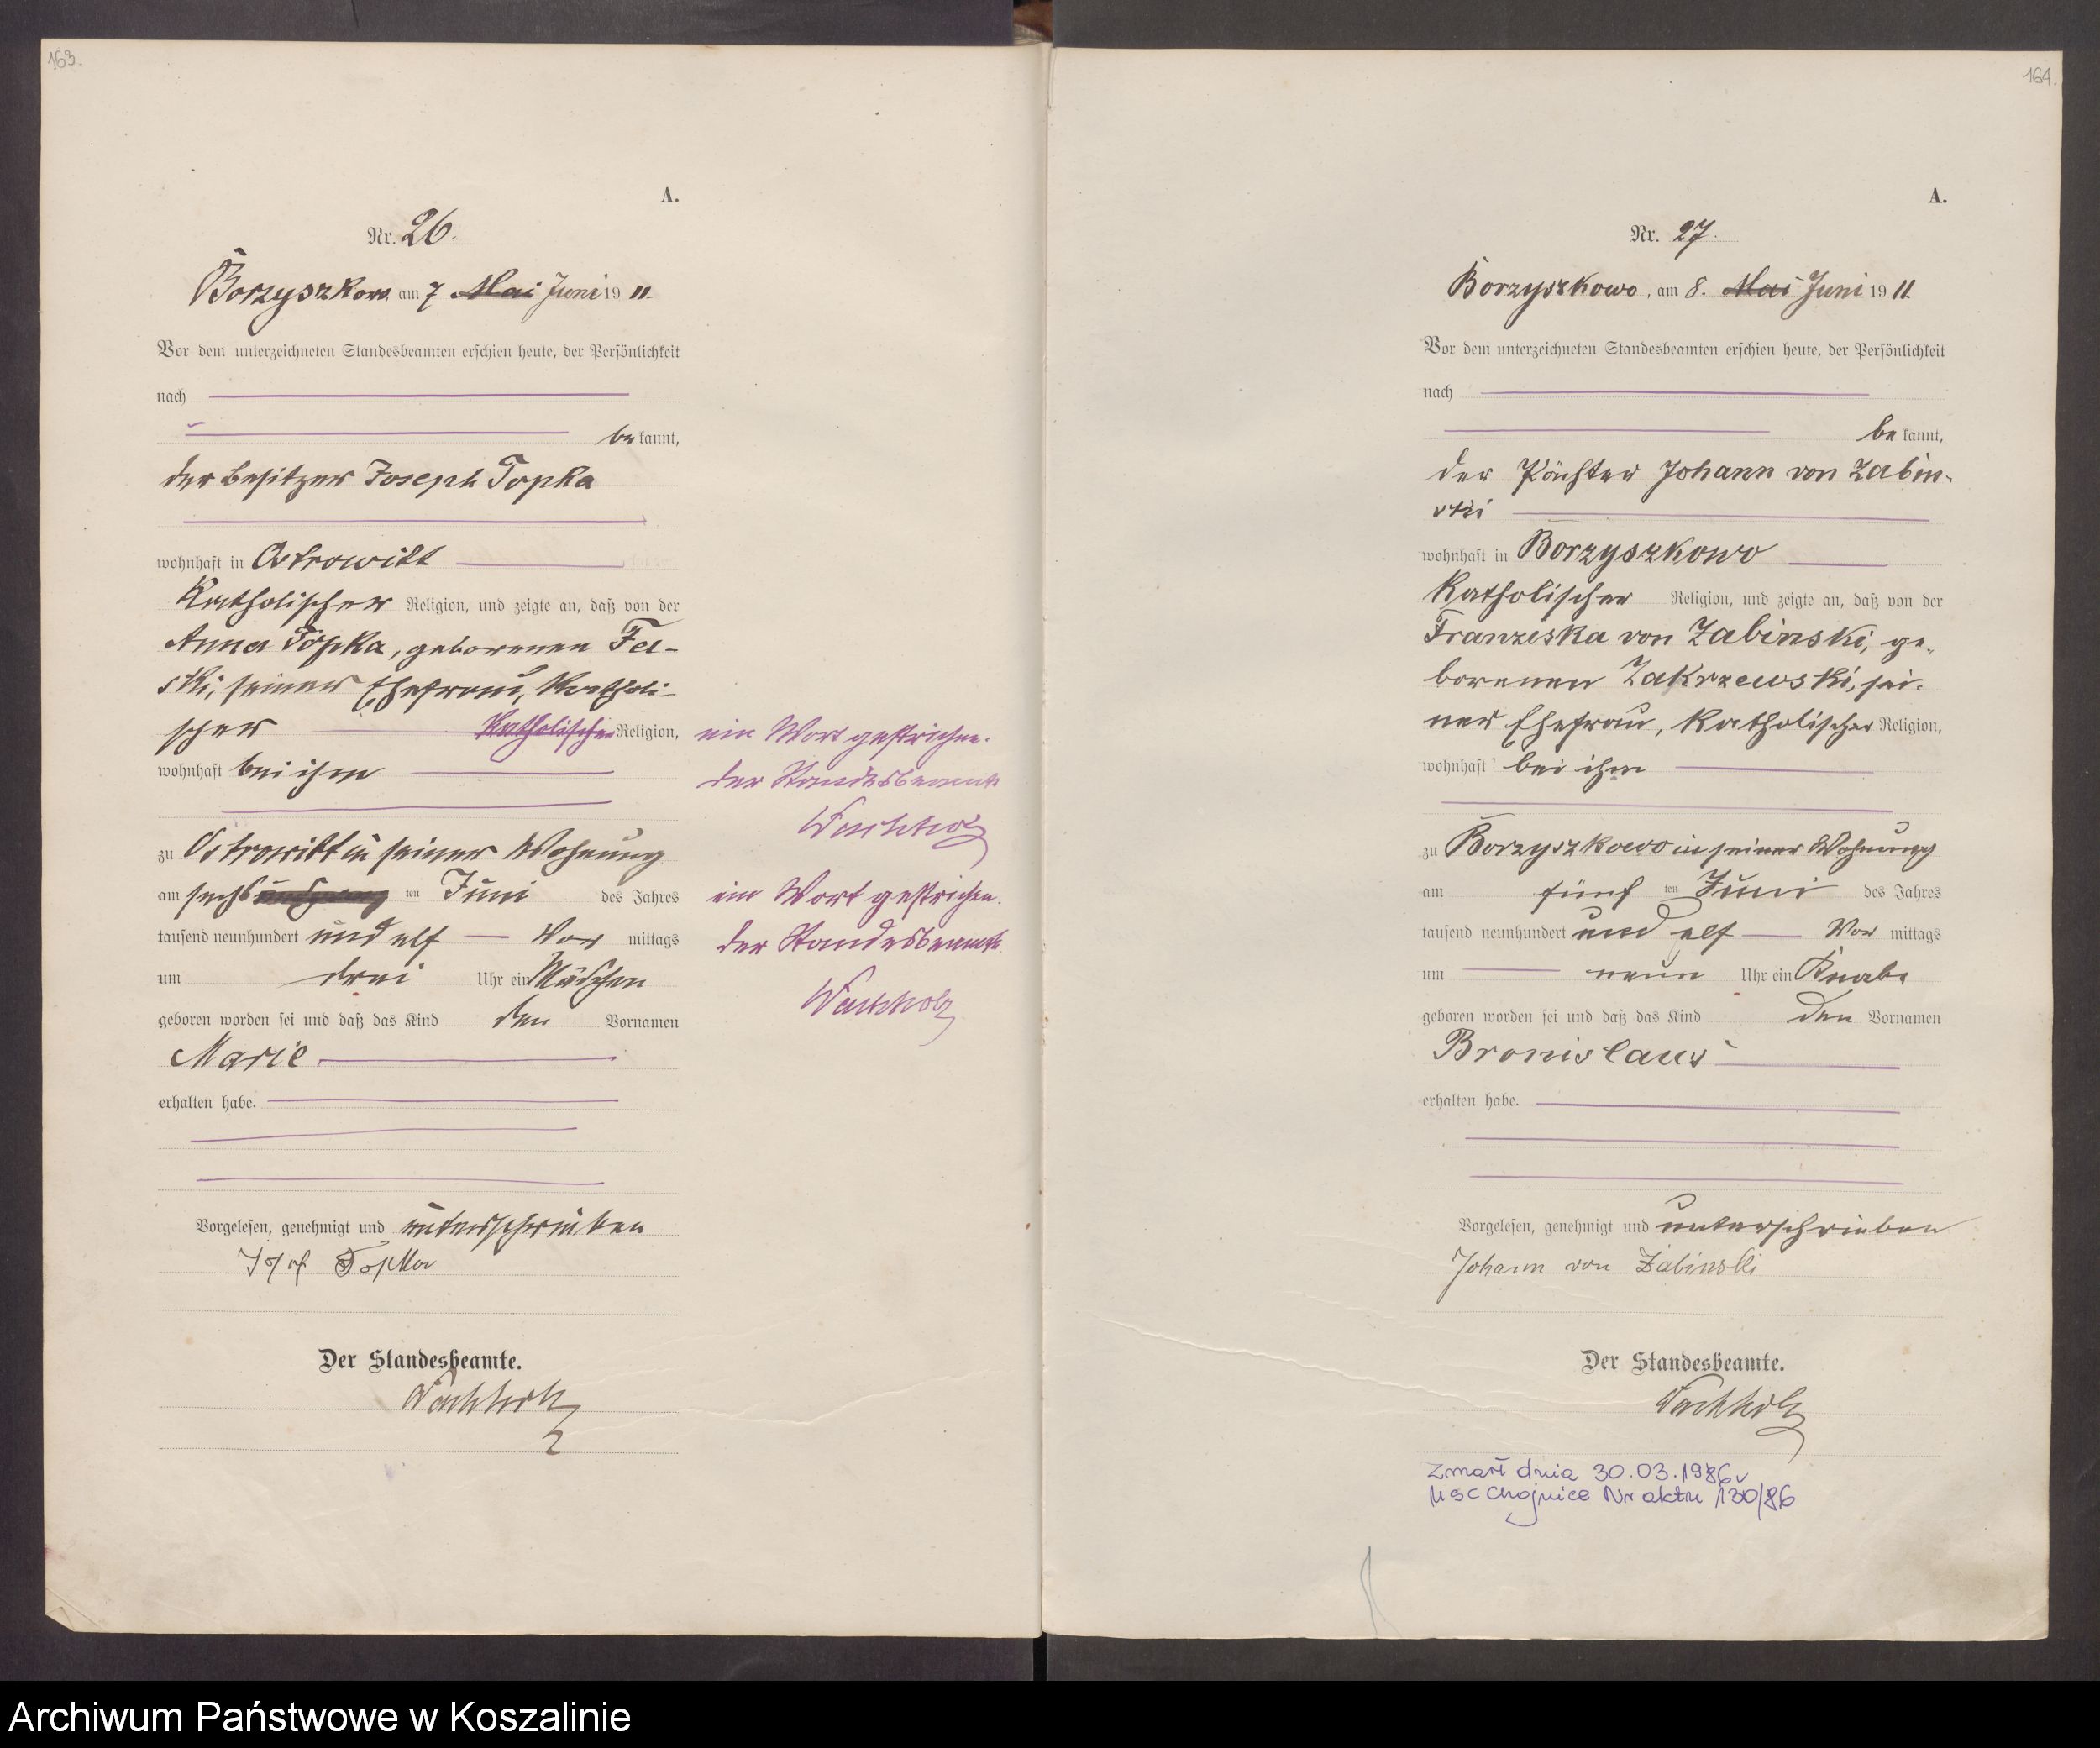 163.
A.
Nr. 26.
Borzyszkowo am 7 Mai Juni 19 11
Vor dem unterzeichneten Standesbeamten erschien heute, der Persönlichkeit
nach
be kannt,
der Besitzer Joseph Topka
wohnhaft in Ostrowitt
katholischer Religion, und zeigte an, daß von der
Anna Topka, geborenen Fel-
ski, seiner Ehefrau, katholi-
scher katholischer Religion,
wohnhaft bei ihm
zu Ostrowitt in seiner Wohnung
am sechs ten Juni des Jahres
tausend neunhundert und elf Vor mittags
um drei Uhr ein Mädchen
geboren worden sei und daß das Kind den Vornamen
Marie
erhalten habe.
Vorgelesen, genehmigt und unterschrieben
Josef Topka
Der Standesbeamte.
Wachholz
ein Wort gestrichen.
der Standesbeamte
Wachholz
ein Wort gestrichen.
der Standesbeamte
Wachholz
164.
A.
Nr. 27.
Borzyszkowo, am 8. Mai Juni 19 11
Vor dem unterzeichneten Standesbeamten erschien heute, der Persönlichkeit
nach
be kannt,
der Pächter Johann von Zabin-
ski
wohnhaft in Borzyszkowo
katholischer Religion, und zeigte an, daß von der
Franzeska von Zabinski, ge-
borenen Zakrzewski, sei-
ner Ehefrau, katholischer Religion,
wohnhaft bei ihm
zu Borzyszkowo in seiner Wohnung
am fünf ten Juni des Jahres
tausend neunhundert und elf Vor mittags
um neun Uhr ein Knabe
geboren worden sei und daß das Kind den Vornamen
Bronislaus
erhalten habe.
Vorgelesen, genehmigt und unterschrieben
Johann von Zabinski
Der Standesbeamte.
Wachholz
Zmarł dnia 30.03.1986r
USC Chojnice Nr aktu 130/86
Archiwum Państwowe w Koszalinie